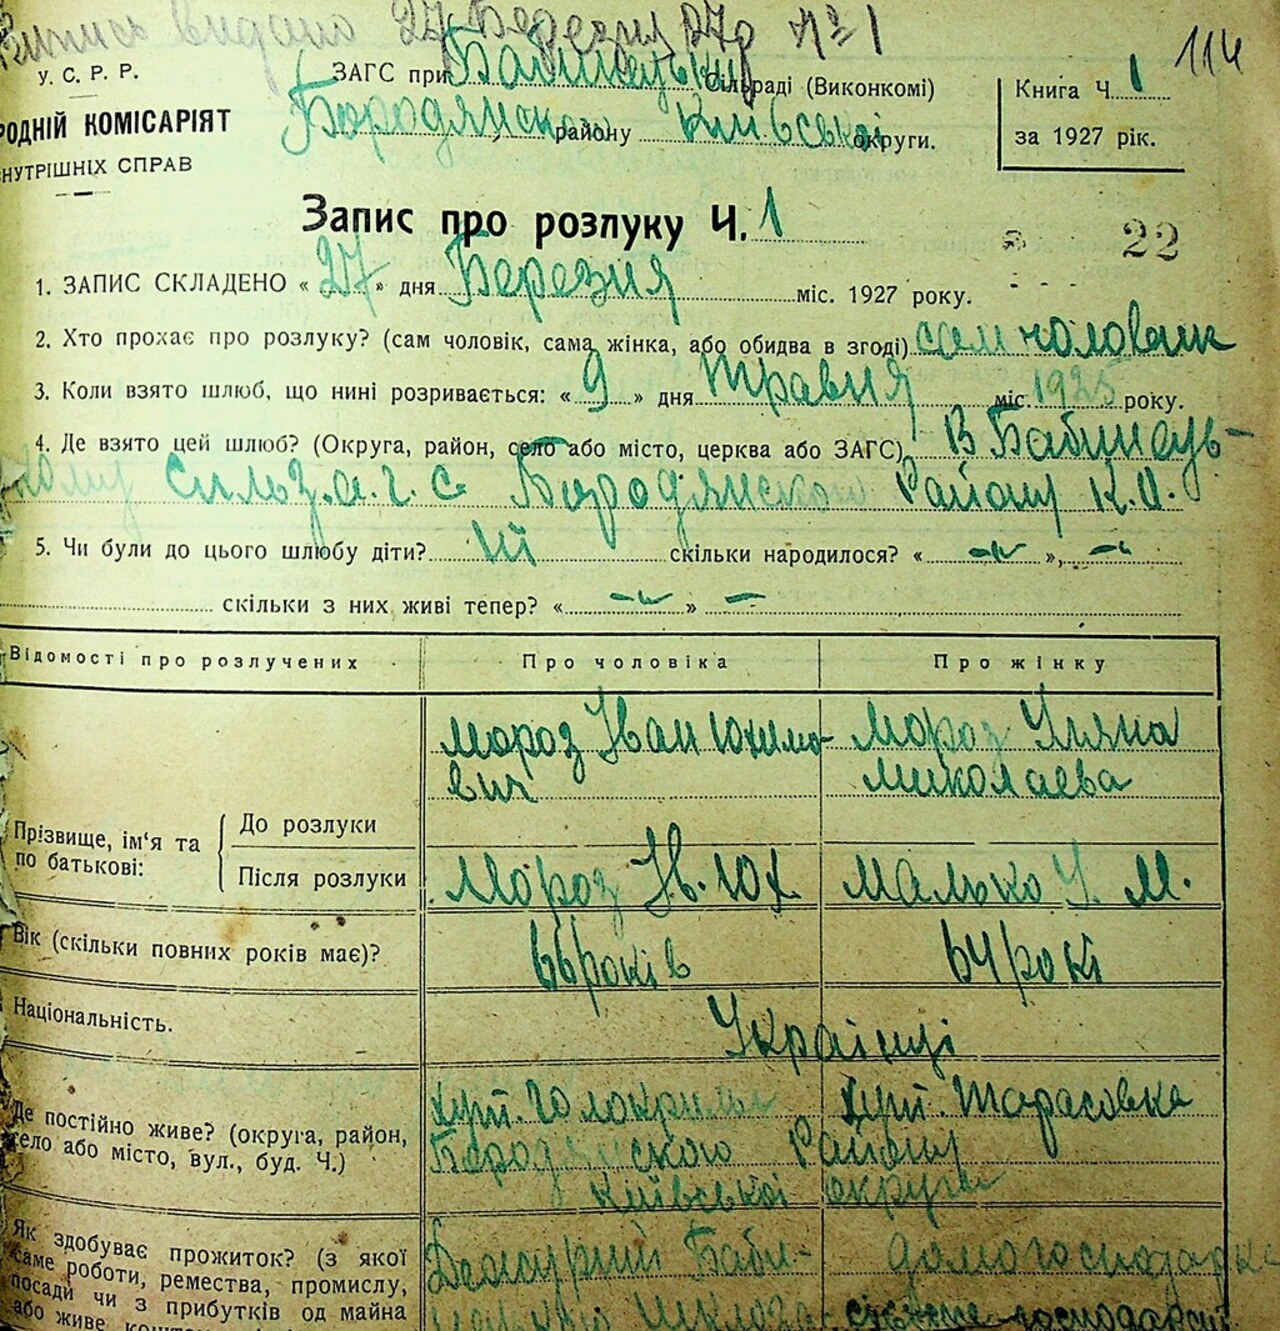 Випись видано 27 Березня 27 р № 1
114
У. С. Р. Р.
ЗАГС при Бабинецькій Сільраді (Виконкомі)
Книга Ч. 1
РОДНІЙ КОМІСАРІЯТ
Бородянськ району Київської округи.
за 1927 рік.
НУТРІШНІХ СПРАВ
Запис про розлуку Ч. 1
22
1. ЗАПИС СКЛАДЕНО « 27 » дня Березня міс. 1927 року.
2. Хто прохає про розлуку? (сам чоловік, сама жінка, або обидва в згоді) сам чоловік
3. Коли взято шлюб, що нині розривається: « 9 » дня травня міс. 1925 року.
4. Де взято цей шлюб? (Округа, район, село або місто, церква або ЗАГС) В Бабинець-
кому Сільз.а.г.с Бородянского Району К.О.
5. Чи були до цього шлюбу діти? ні скільки народилося? « -„- », -„
скільки з них живі тепер? « -„- » -
Відомості про розлучених
Про чоловіка
Про жінку
Мороз Іван Юхимо-
вич
Мороз Уляна
Миколаева
Прізвище, ім'я та
по батькові:
До розлуки
Після розлуки
Мороз Ів. Юх
Малько У. М.
Вік (скільки повних років має)?
66 років
64 рокі
Національність.
Українці
Де постійно живе? (округа, район,
село або місто, вул., буд. Ч.)
хут. Тарасовка
Бородянского Району
Київської округи
Як здобуває прожиток? (з якої
саме роботи, ремества, промислу,
посади чи з прибутків од майна
або живе
Бабин-
домогосподарка
господарстві